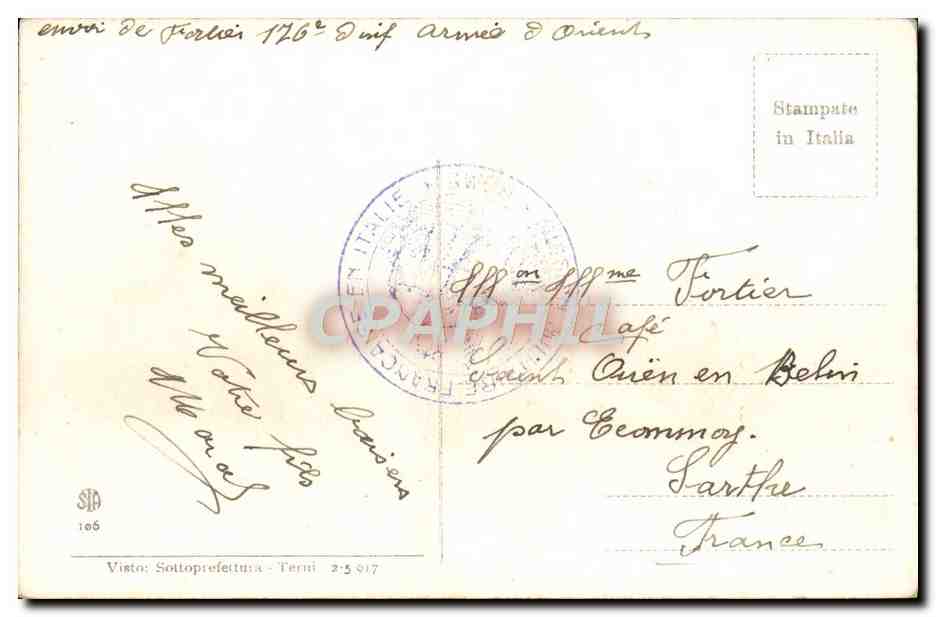 envoi de Fortier 176e d'inf Armée d'Orient
Stampate
in Italia
EN ITALIE
FRANÇAISE
Mes meilleurs baisers
Votre fils
Marcel
Mon Mme Fortier
Café
Saint Ouën en Belin
par Ecommoy.
Sarthe
France
CPAPHIL
STA
106
Visto: Sottoprefettura - Terni 2-5 917